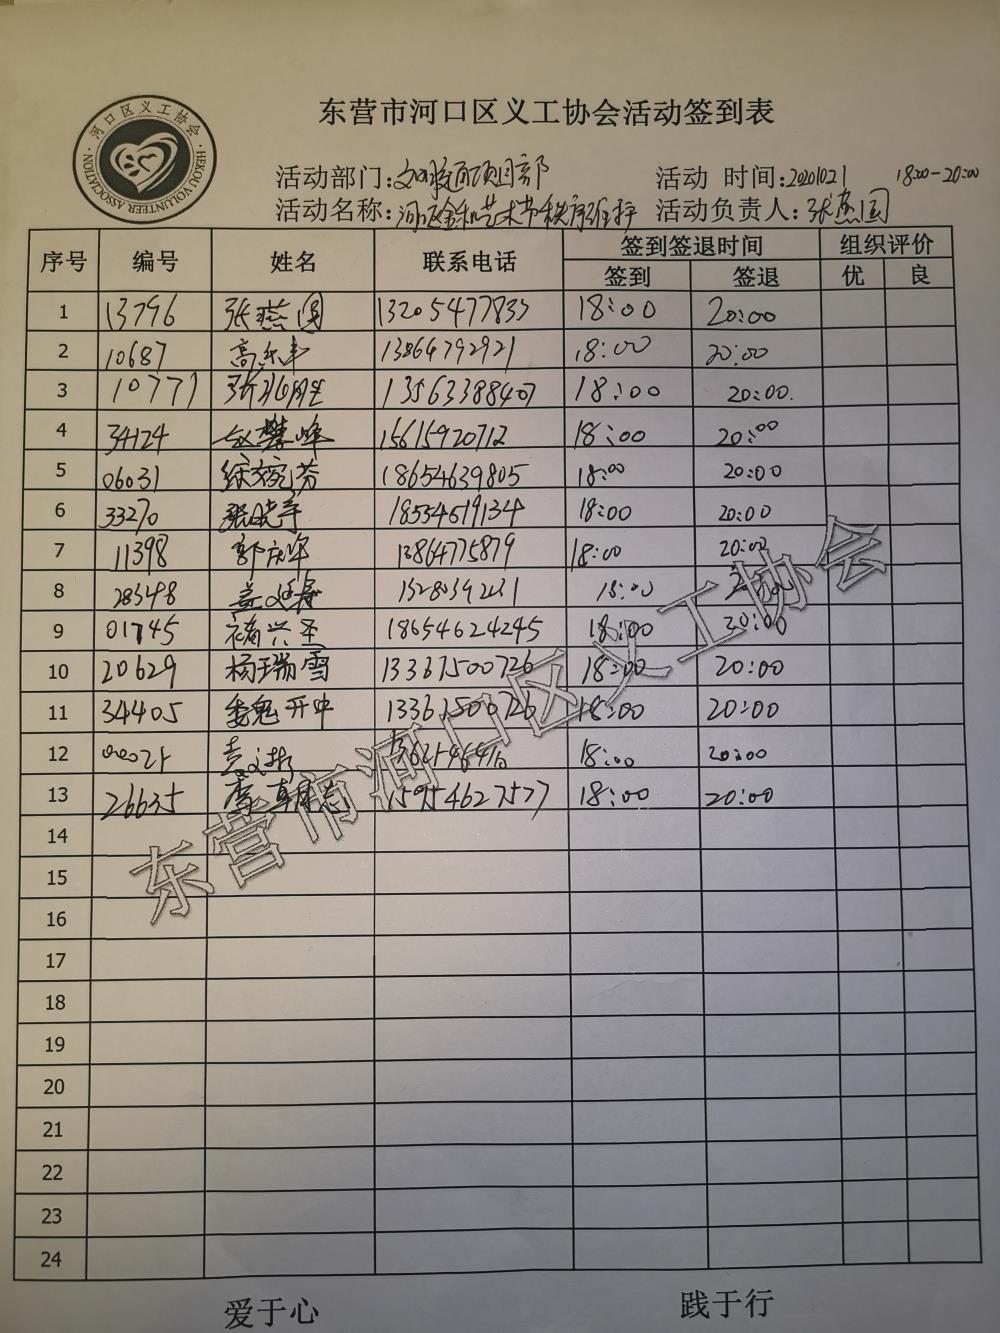 东营市河口区义工协会活动签到表
河口区义工协会
HEKOU VOLUNTEER ASSOCIATION
活动部门: 文明交通项目部 活动 时间:20201021 18:00-20:00
活动名称: 艺术节秩序维护 活动负责人: 张燕国
序号 编号 姓名 联系电话 签到签退时间 组织评价
签到 签退 优 良
1 13796 张燕国 13205477837 18:00 20:00
2 10687 高 13864792921 18:00 20:00
3 10771 张 13563388407 18:00 20:00.
4 34124 赵攀峰 15615920712 18:00 20:00
5 06031 18654639805 18:00 20:00
6 33270 张晓宇 18554619134 18:00 20:00
7 11398 郭庆华 13864775879 18:00 20:00
8 28348 18:00
9 01745 褚兴圣 18654624245 18:00 20:00
10 20629 杨瑞雪 13361500726 18:00 20:00
11 34405 魏开中 13361500726 18:00 20:00
12 18:00 20:00
13 26635 18:00 20:00
14
15
16
17
18
19
20
21
22
23
24
东营市河口区义工协会
爱于心 践于行